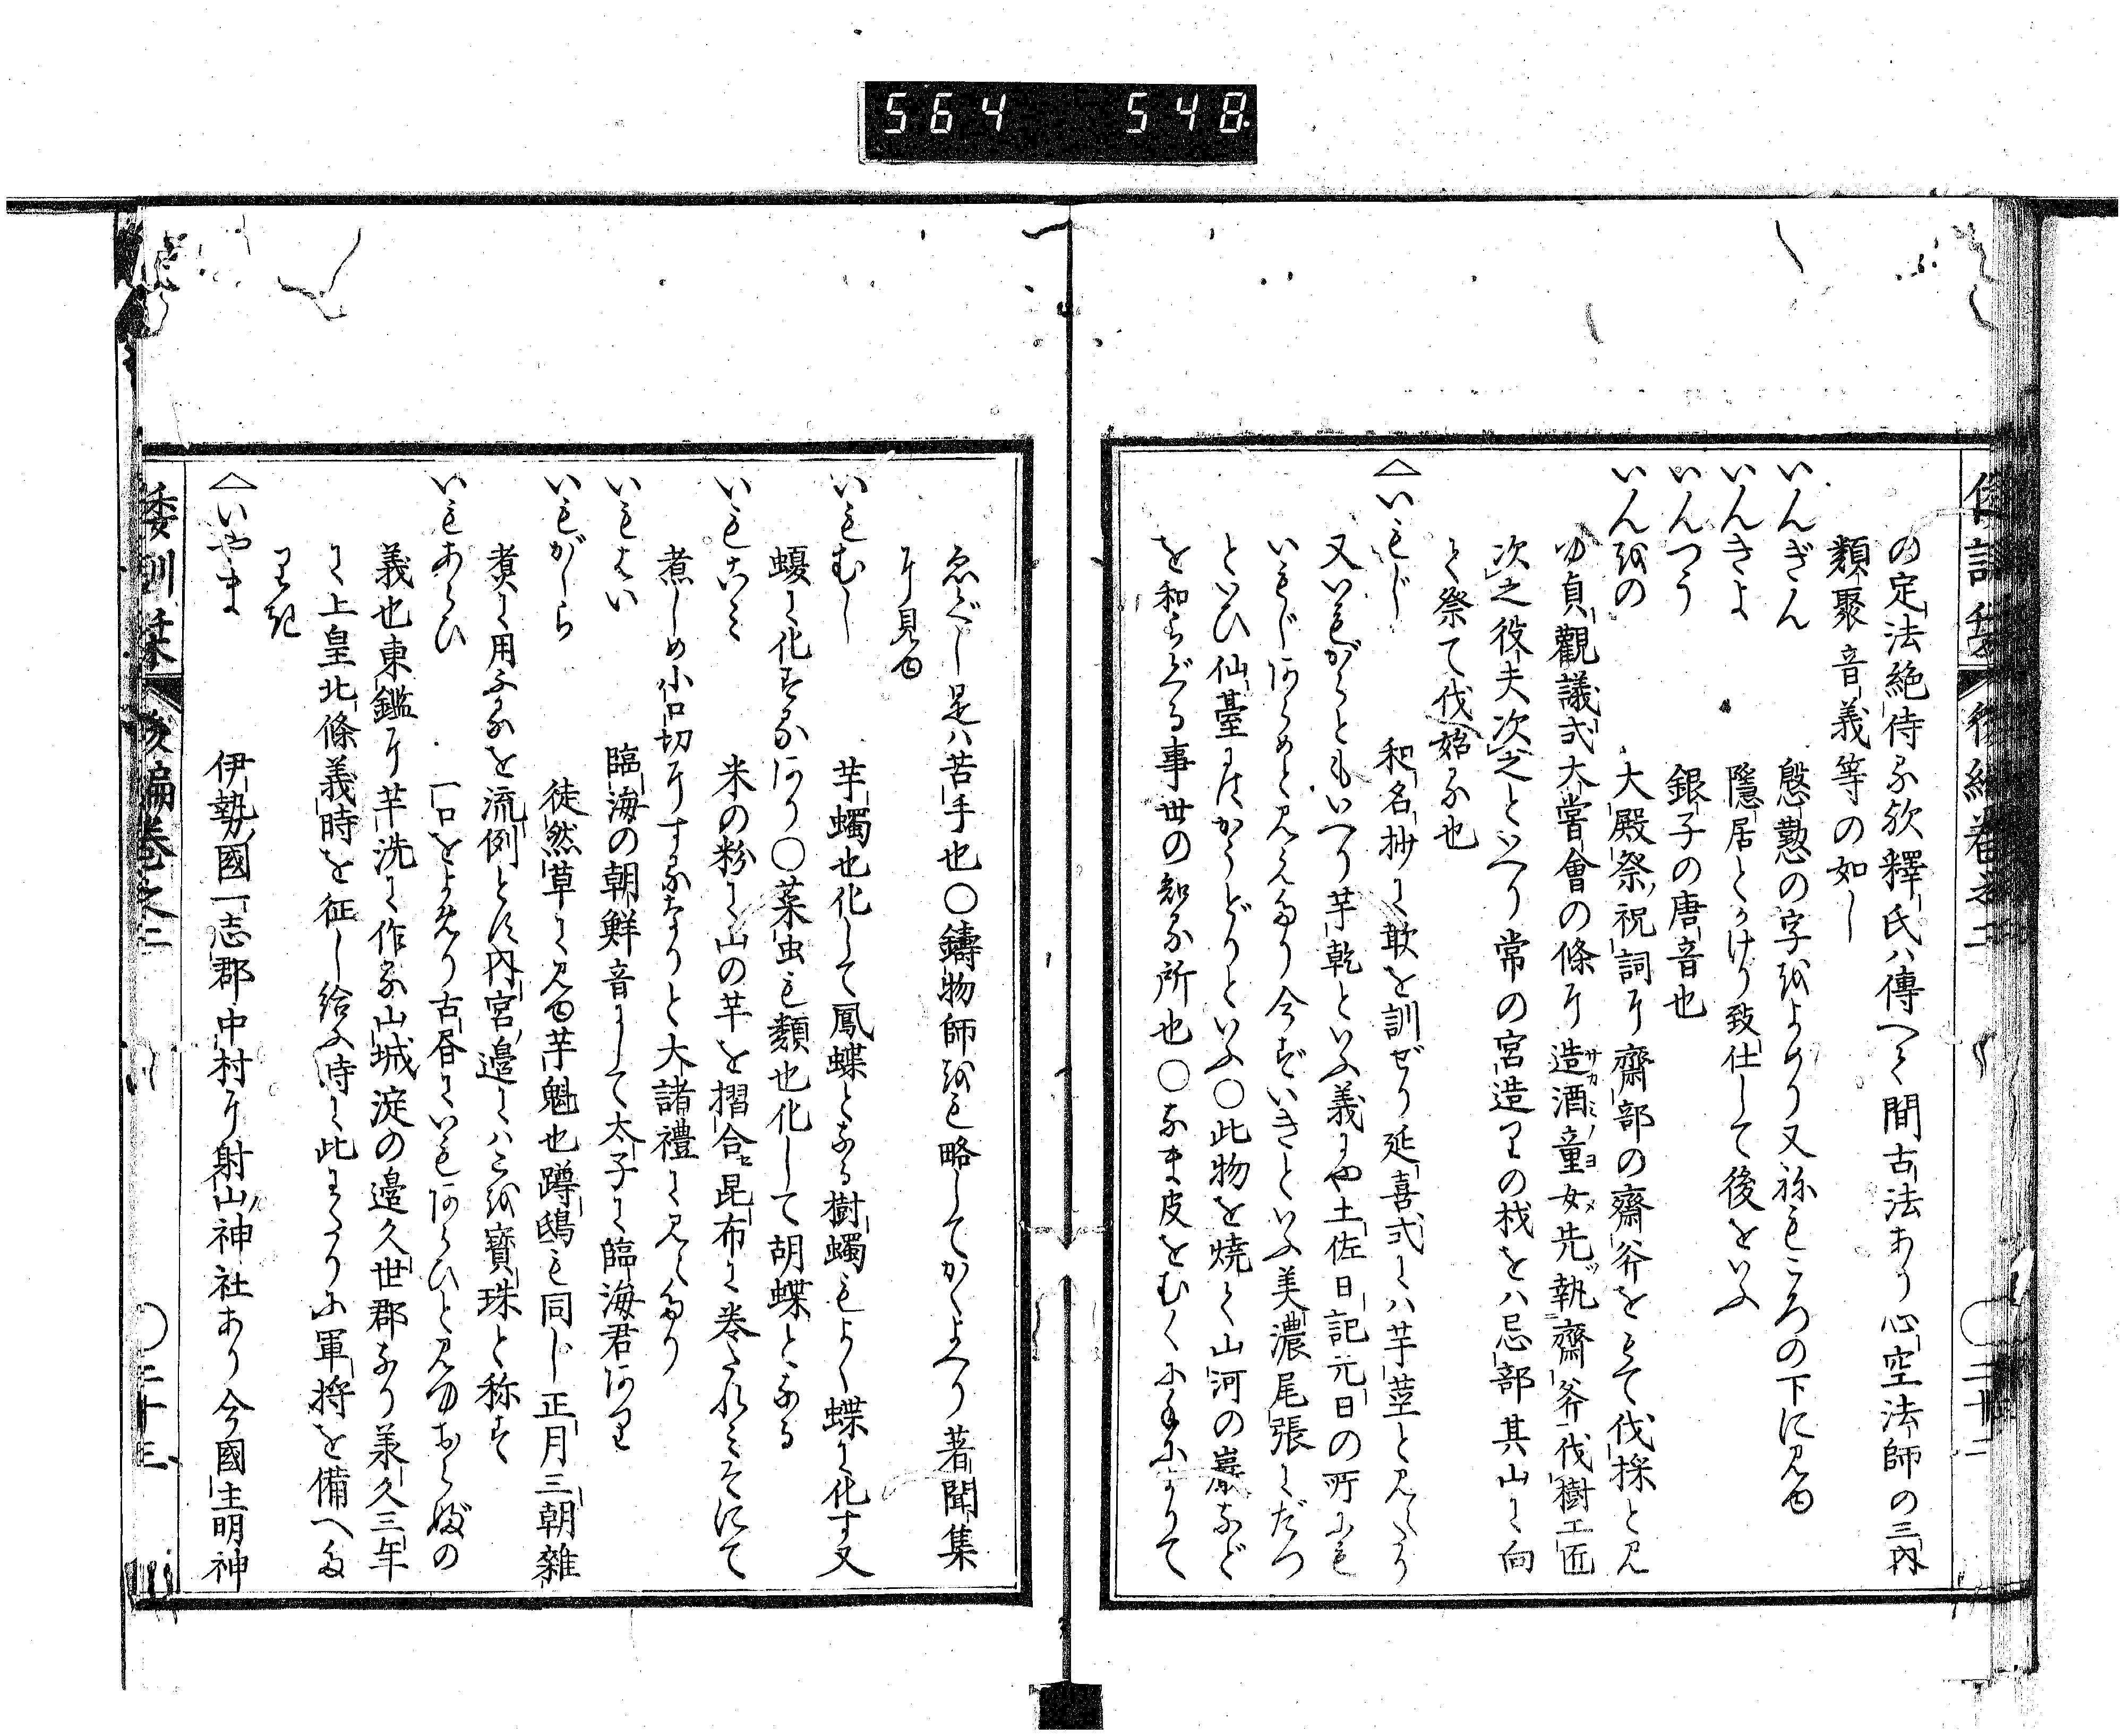 564 548
の定法絶待る歟釋氏ハ傳へて間古法あり心空法師の三内
類聚音義等の如し
いんぎん 慇懃の字をよめり又ねもころの下に見ゆ
いんきよ 隱居とかけり致仕して後をいふ
いんつう 銀子の唐音也
いんをの 大殿祭祝詞に齋部の齋斧をもて伐採と見
ゆ貞觀議式大嘗會の條に造酒童女先執齋斧伐樹工匠
サカミノヨメ
次之役夫次之といへり常の宮造りの材をハ忌部其山に向
て祭て伐始る也
△いもじ 和名抄に〓を訓ぜり延喜式にハ芋莖と見えたり
又いもがらともいへり芋乾といふ義にや土佐日記元日の所にも
いもじあらめと見えたり今ずいきといふ美濃尾張にだつ
といひ仙臺にてからどりといふ〇此物を燒て山河の巖など
を和らぐる事世の知る所也〇なま皮をむくに手によりて
ゑぐし是ハ苦手也〇鑄物師をも略してかくよべり著聞集
に見ゆ
いもむし 芋蠋也化して鳳蝶となる樹蠋もよく蝶に化す又
蝮に化するあり〇菜虫も類也化して胡蝶となる
いもこみ 米の粉に山の芋を摺合せ昆布に卷たれみそにて
煮しめ小口切にするなりと大諸禮に見えたり
いもはい 臨海の朝鮮音にして太子に臨海君あり
いもがしら 徒然草に見ゆ芋魁也蹲鴟も同じ正月三朝雜
煮に用ふるを流例とす内宮邊にハこを寶珠と称す
いもあらひ 一口をよめり古昏にいもあらひと見ゆおらばの
義也東鑑に芋洗に作る山城淀の邊久世郡なり承久三年
に上皇北條義時を征し給ふ時に此わたりに軍將を備へた
まひき
△いやま 伊勢ノ國一志郡中村に射山ノ神社あり今國主明神
倭訓栞 後編卷之二 〇二十三